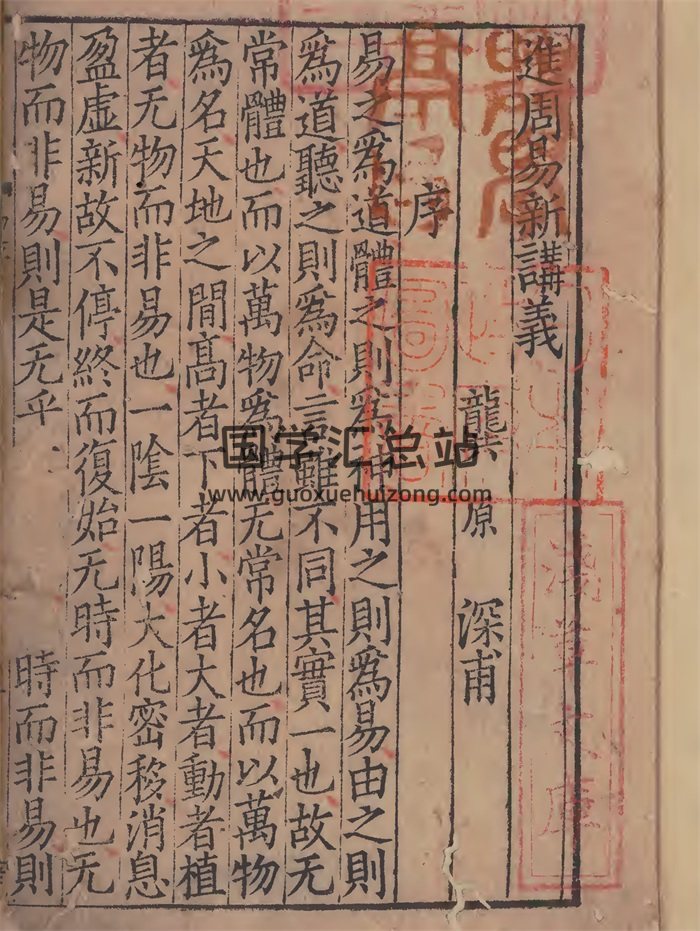 進周易新講義
龔原 深甫
序
易之爲道體之則爲神用之則爲易由之則
爲道聽之則爲命言雖不同其實一也故无
常體也而以萬物爲體无常名也而以萬物
爲名天地之間髙者下者小者大者動者植
者无物而非易也一陰一陽大化密移消息
盈虛新故不停終而復始无時而非易也无
物而非易則是无乎 時而非易則
淺草文庫
国学汇总站
www.guoxuehuizong.com